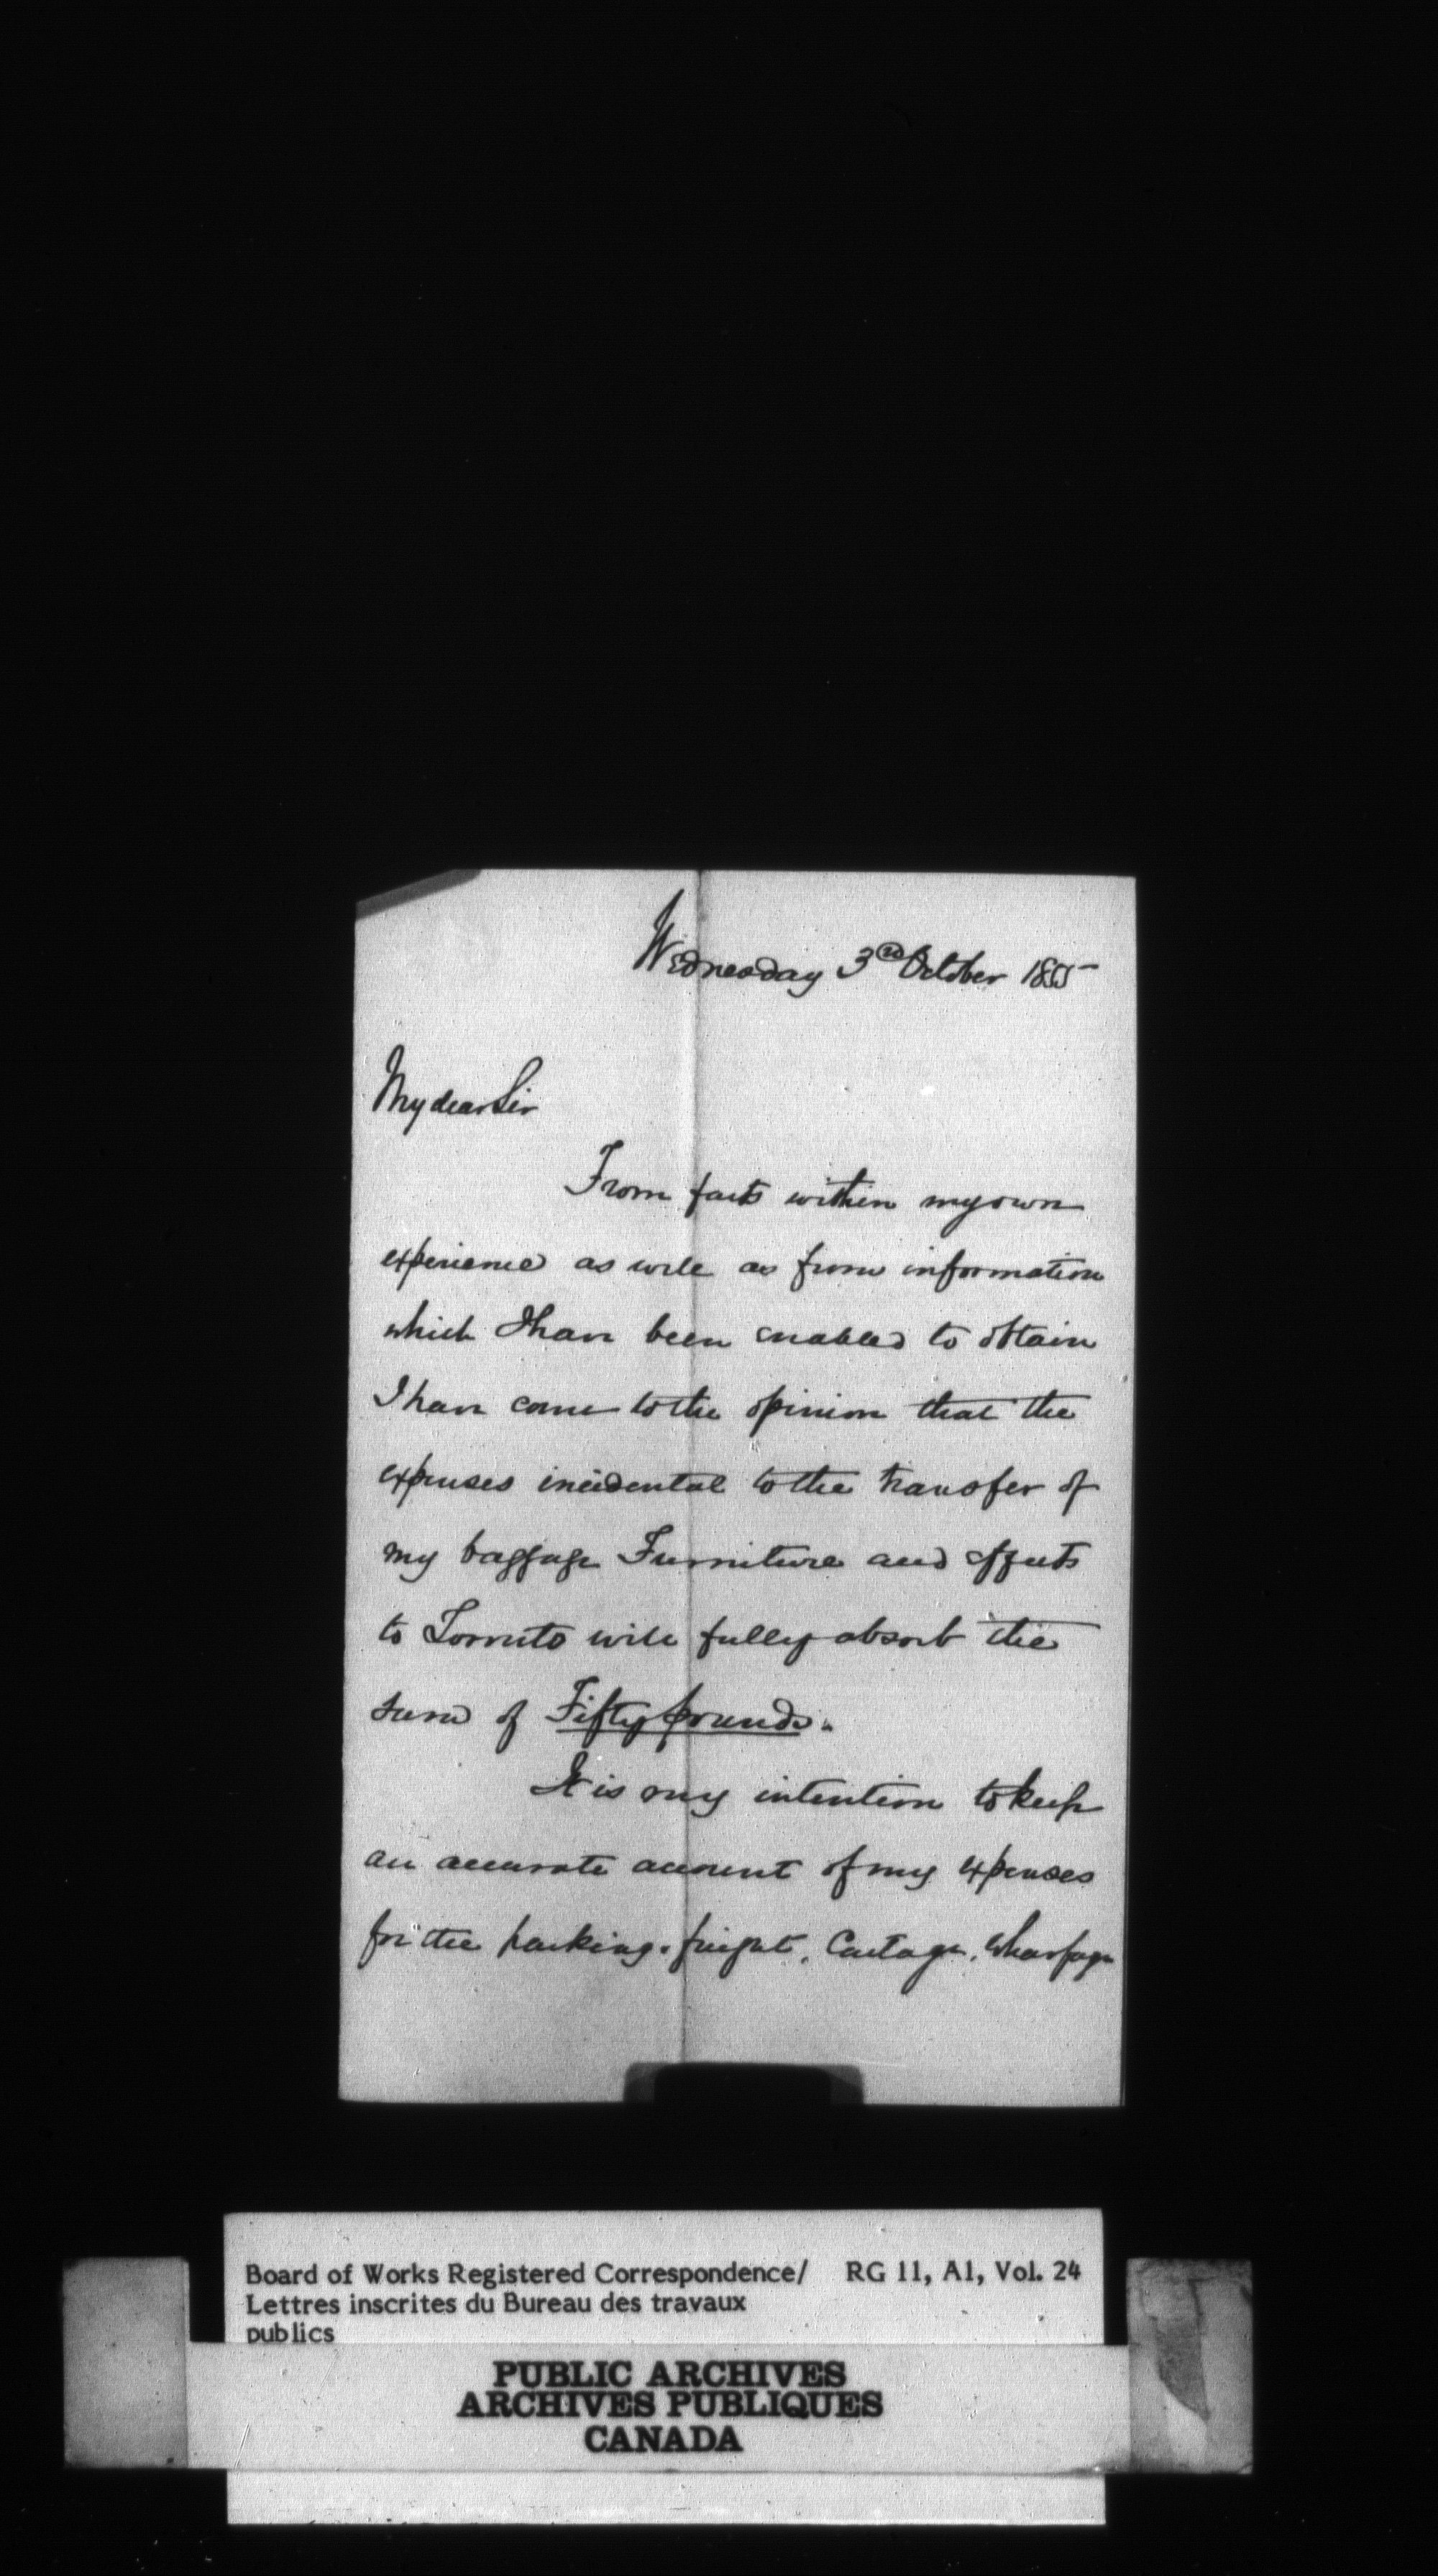 Wednesday 3rd October 1855
My dear Sir
From facts within my own
experience as well as from information
which I have been enabled to obtain
I have come to the opinion that the
expenses incidental to the transfer of
my baggage Furniture and effects
to Toronto will fully absorb the
sum of Fifty pounds.
It is my intention to keep
an accurate account of my expenses
for the packing, freight, Cartage, Wharfage
Board of Works Registered Correspondence/ RG 11, A1, Vol. 24
Lettres inscrites du Bureau des travaux
publics
PUBLIC ARCHIVES
ARCHIVES PUBLIQUES
CANADA